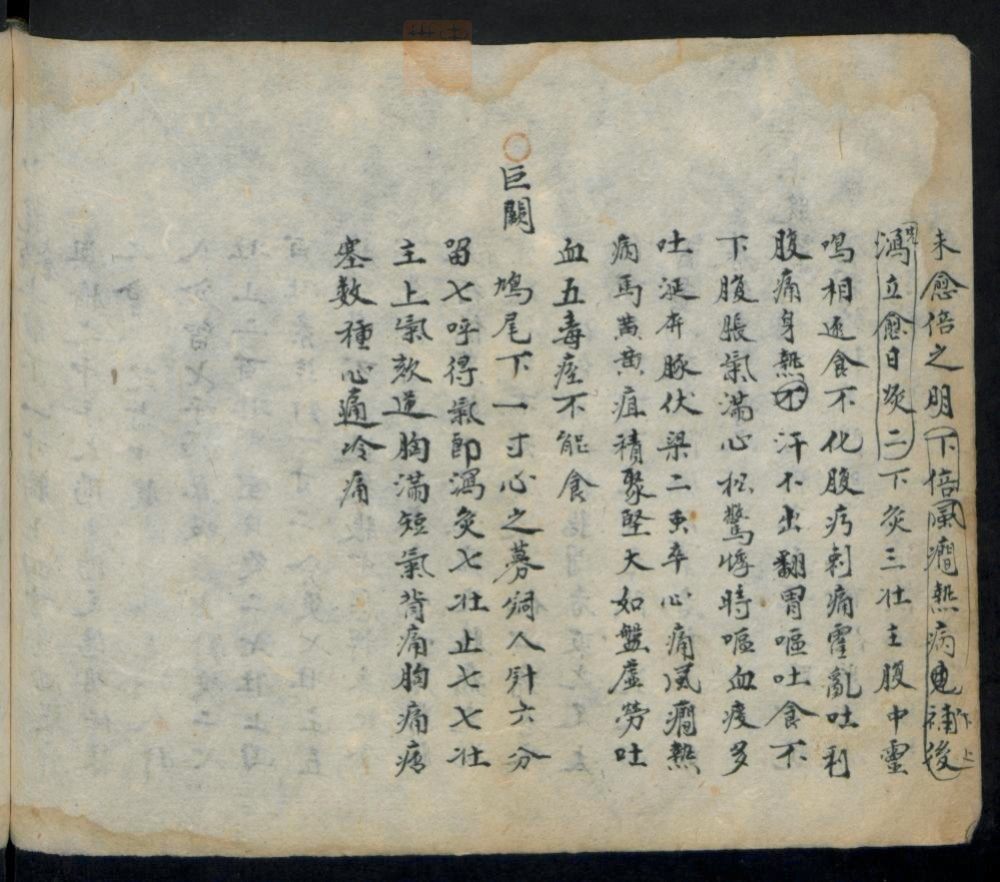 未愈倍之明下倍風癎熱病先補後
瀉立愈日灸二下灸三壮主腹中雷
鳴相逐食不化腹疠刺痛霍亂吐利
腹痛身熱不汗不出翻胃嘔吐食不
下腹脹氣滿心松驚悸時嘔血痰多
吐涎奔豚伏梁二䖝卒心痛風癎熱
病馬黄黄疸積聚堅大如盤虚勞吐
血五毒痓不能食
巨闕
鳩尾下一寸心之募銅人針六分
留七呼得氣即瀉灸七壮止七七壮
主上氣欬逆胸滿短氣背痛胸痛痞
塞數種心痛冷痛